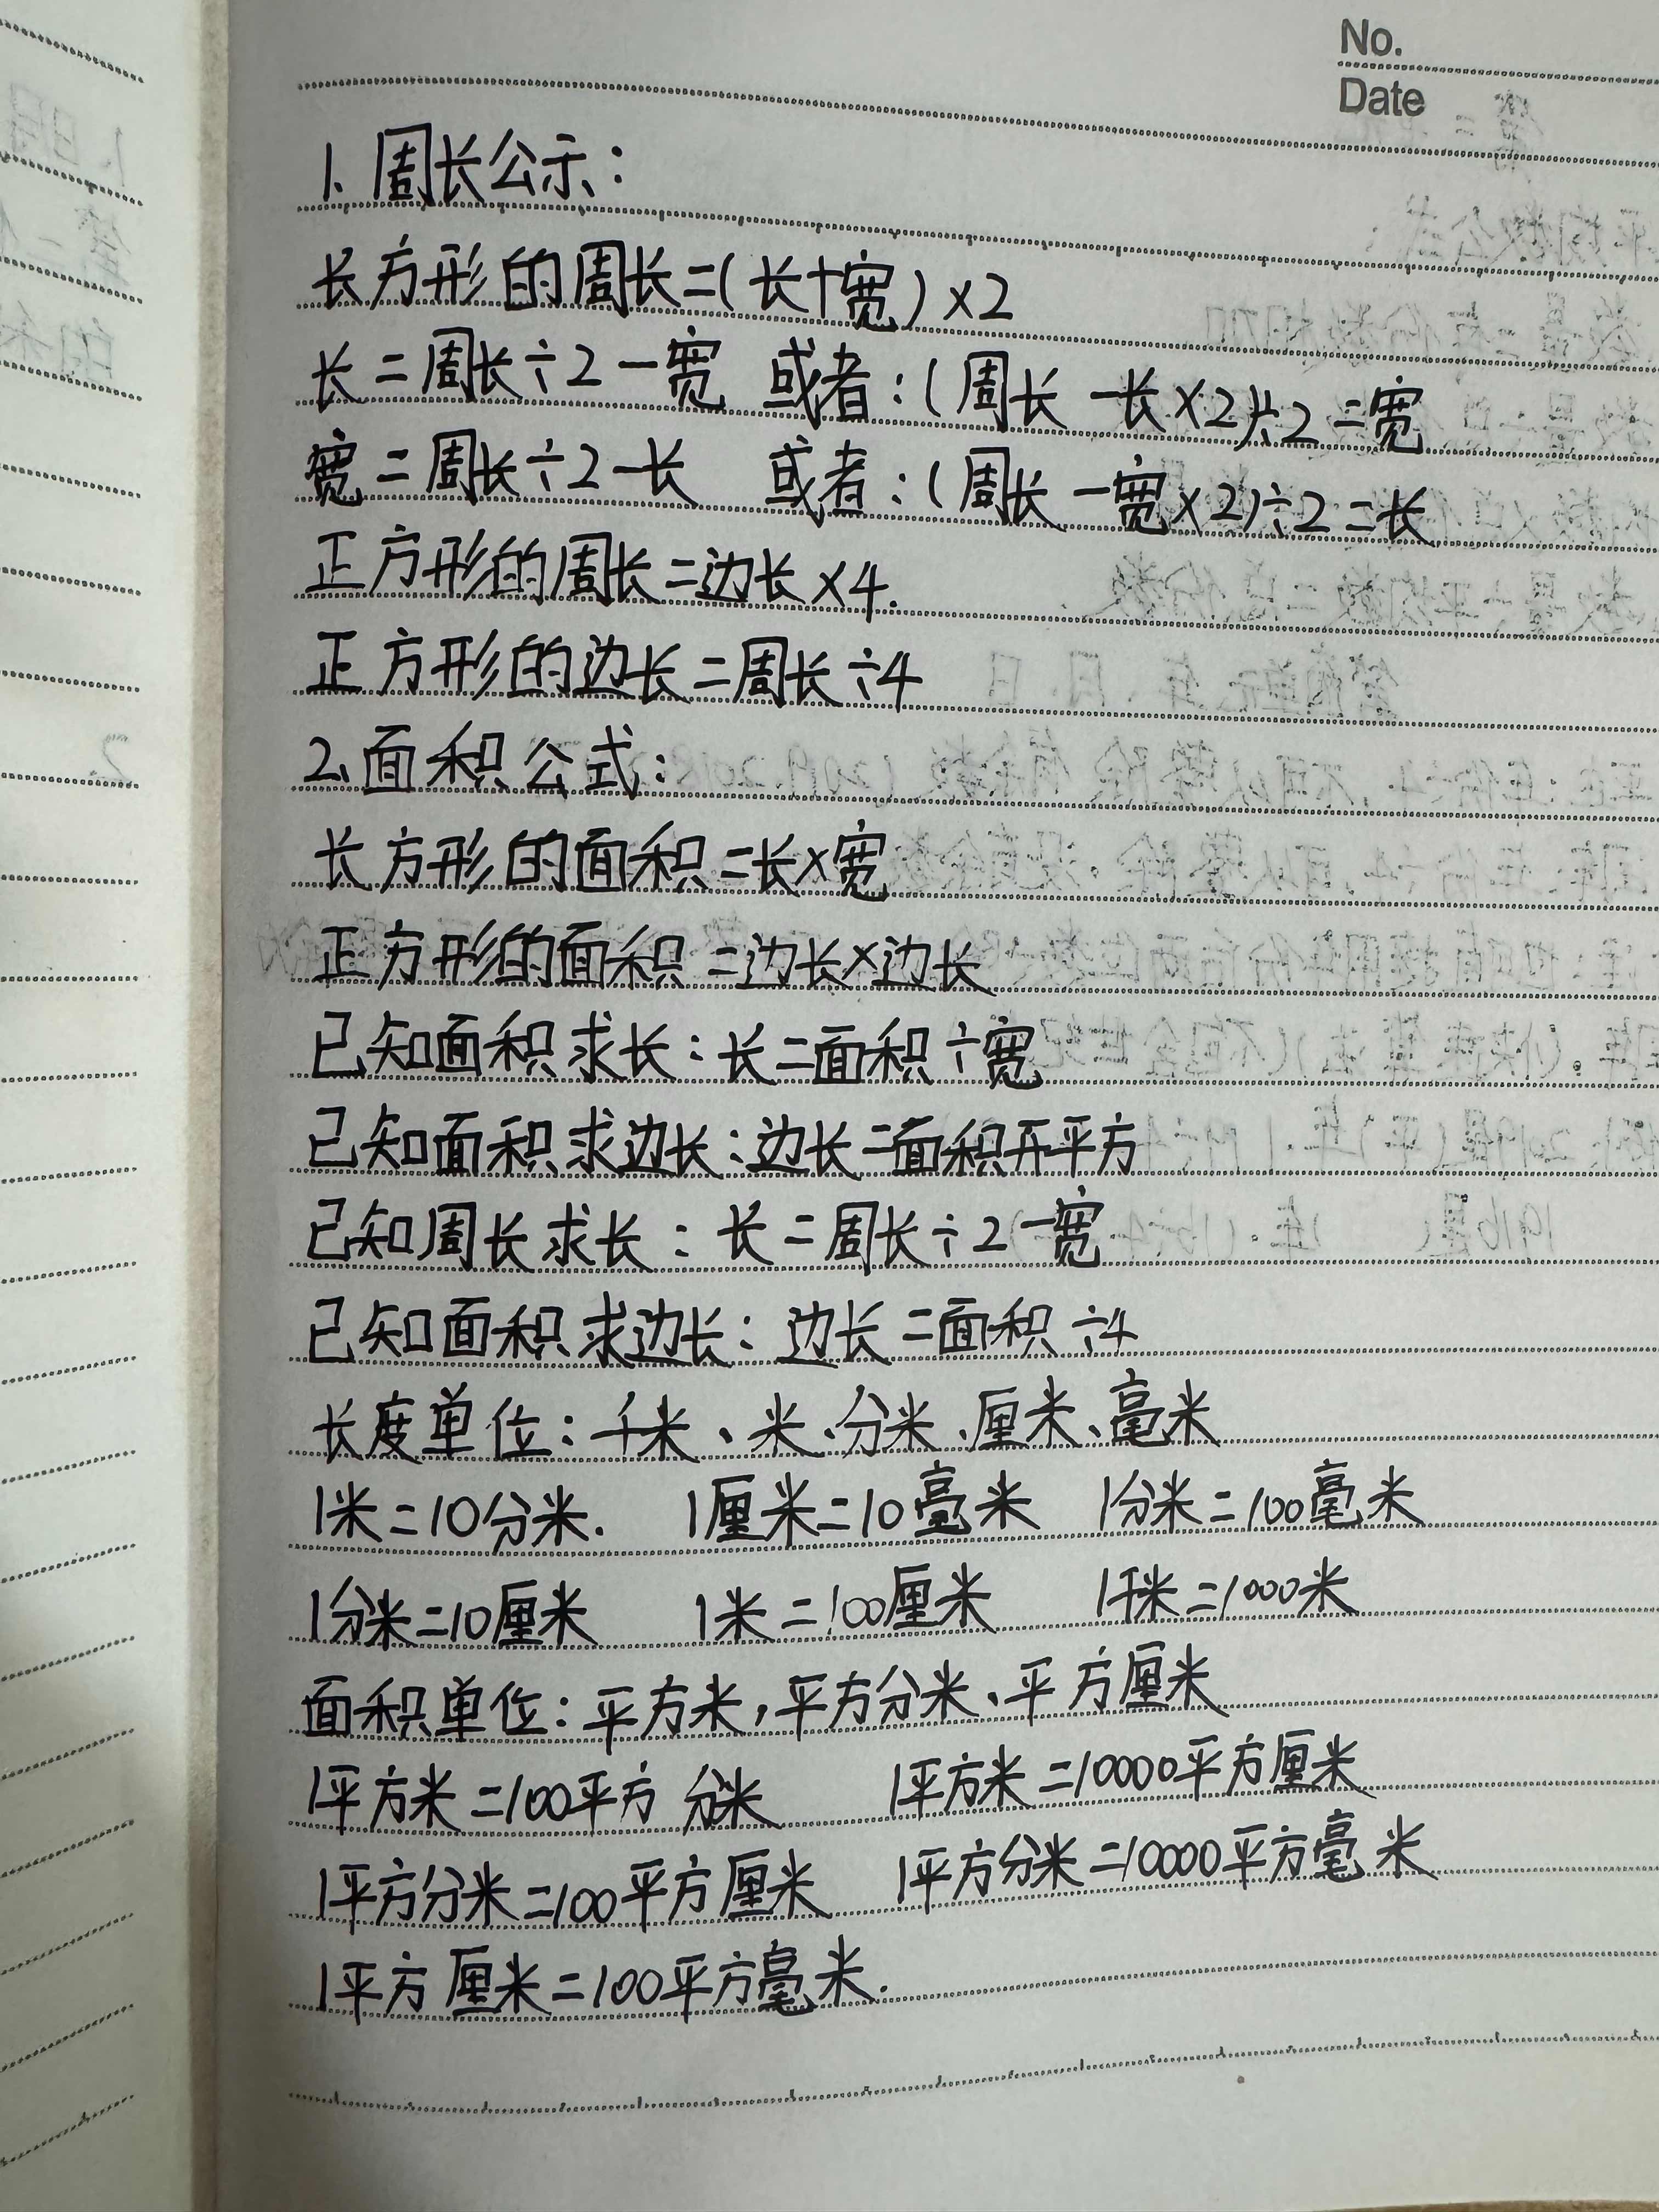 No.
Date
1、周长公示：
长方形的周长=(长+宽)×2
长=周长÷2-宽 或者:(周长-长×2)÷2=宽
宽=周长÷2-长 或者:(周长-宽×2)÷2=长
正方形的周长=边长×4.
正方形的边长=周长÷4
2、面积公式：
长方形的面积=长×宽
正方形的面积=边长×边长
已知面积求长：长=面积÷宽
已知面积求边长：边长=面积开平方
已知周长求长：长=周长÷2-宽
已知面积求边长：边长=面积÷4
长度单位：千米、米、分米、厘米、毫米
1米=10分米. 1厘米=10毫米 1分米=100毫米
1分米=10厘米 1米=100厘米 1千米=1000米
面积单位：平方米,平方分米、平方厘米
1平方米=100平方分米 1平方米=10000平方厘米
1平方分米=100平方厘米 1平方分米=10000平方毫米
1平方厘米=100平方毫米.